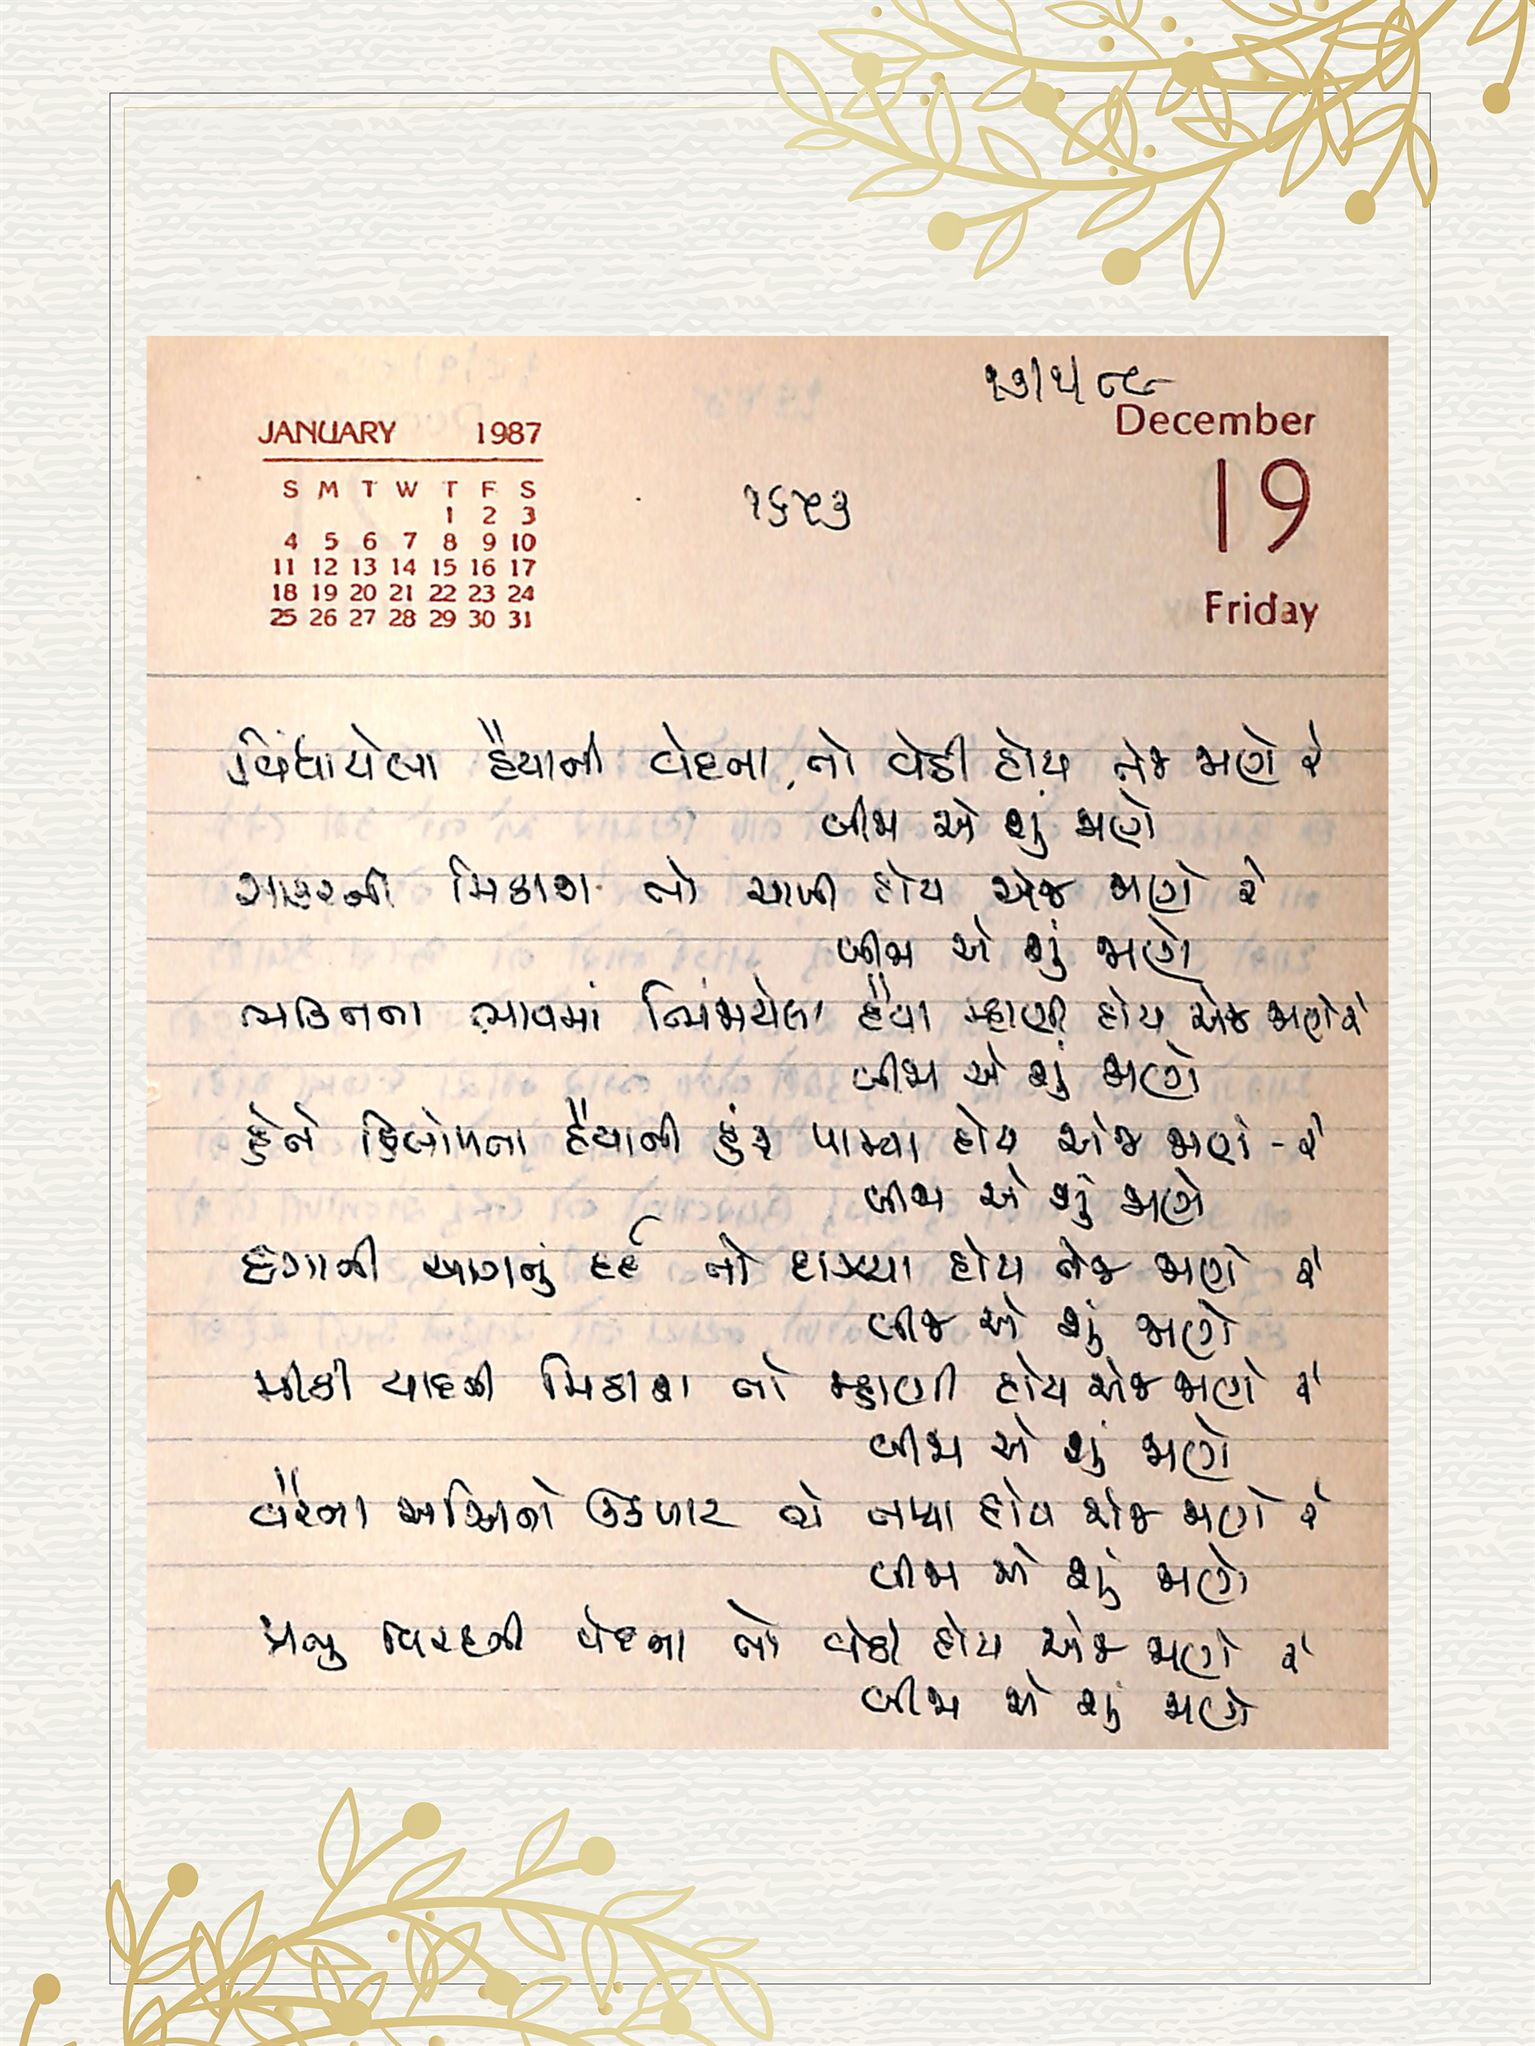 ૨૩/૫/૮૯
JANUARY 1987
December
S M T W T F S
1 2 3
4 5 6 7 8 9 10
11 12 13 14 15 16 17
18 19 20 21 22 23 24
25 26 27 28 29 30 31
૧૬૫૩
19
Friday
વિંધાયેલા હૈયાની વેદના, તો વેઠી હોય તેજ જાણે રે
બીજા એ શું જાણે
સાકરની મિઠાશ તો ચાખી હોય એજ જાણે રે
બીજા એ શું જાણે
ભક્તિના ભાવમાં ભિંજાયેલા હૈયા મ્હાણી હોય એજ જાણે રે
બીજા એ શું જાણે
હેતે હિલોળતા હૈયાની હુંફ પામ્યા હોય એજ જાણે - રે
બીજા એ શું જાણે
દગાની આગનું દર્દ તો દાઝ્યા હોય તેજ જાણે રે
બીજા એ શું જાણે
મીઠી યાદની મિઠાશ તો મ્હાણી હોય એજ જાણે રે
બીજા એ શું જાણે
વૈરના અગ્નિનો ઉકળાટ જે તપ્યા હોય એજ જાણે રે
બીજા એ શું જાણે
પ્રભુ વિરહની વેદના તો વેઠી હોય એજ જાણે રે
બીજા એ શું જાણે